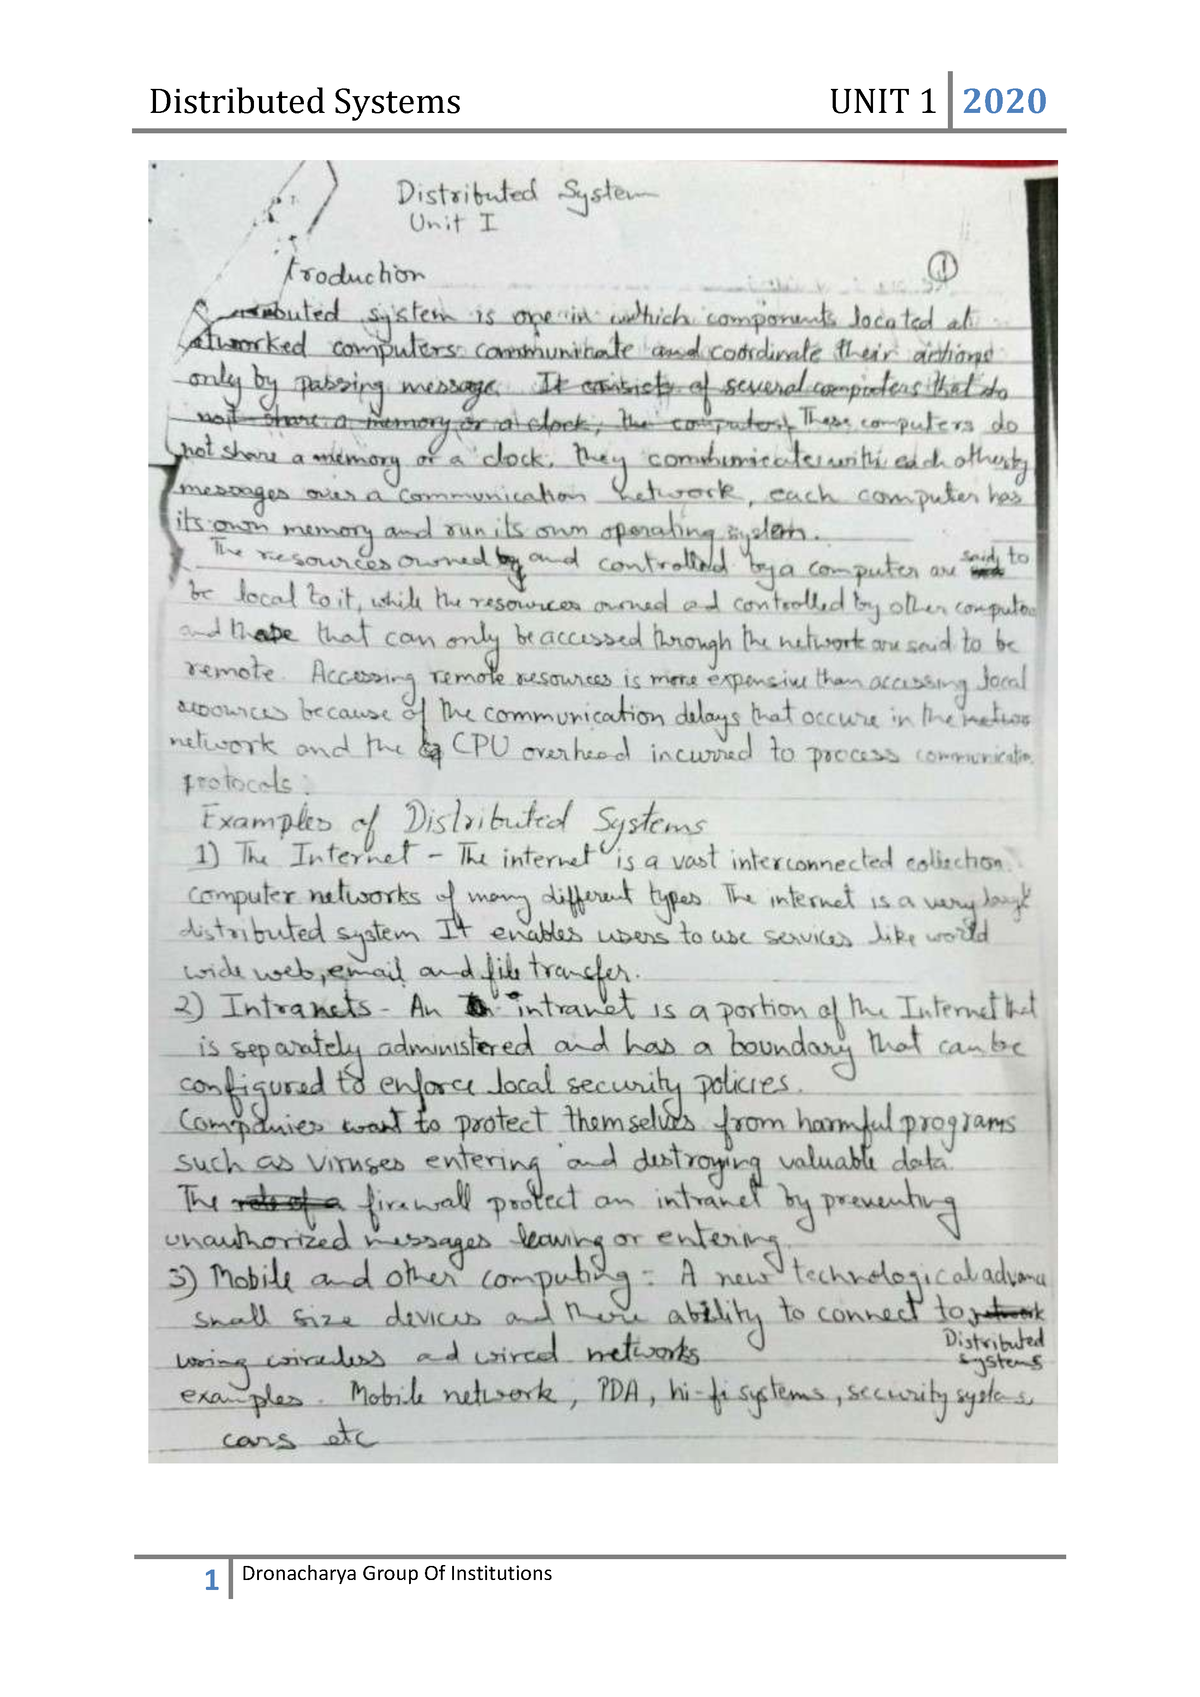 Distributed Systems UNIT 1 2020
Distributed System
Unit I
troduction
1
buted system is one in which components located at
etworked computers communicate and coordinate their actions
only by passing message. It consists of several computers that do
not share a memory or a clock, the computers These computers do
not share a memory or a clock. They communicates with each other by
messages over a communication network, each computer has
its own memory and run its own operating system.
The resources owned by and controlled by a computer are said to
be local to it, while the resources owned ad controlled by other computer
and those that can only be accessed through the network are said to be
remote. Accessing remote resources is more expensive than accessing local
resources because of the communication delays that occure in the
network and the CPU overhead incurred to process communication
protocols.
Examples of Distributed Systems
1) The Internet - The internet is a vast interconnected collection
computer networks of many different types. The internet is a very large
distributed system It enables users to use services like world
wide web, email and file transfer.
2) Intranets - An intranet is a portion of the Internet that
is separately administered and has a boundary that can be
configured to enforce local security policies.
Companies want to protect themselves from harmful programs
such as viruses entering and destroying valuable data.
The role of a firewall protect an intranet by preventing
unauthorized messages leaving or entering.
3) Mobile and other computing: A new technological advance
small size devices and there ability to connect to network
Distributed
systems
using wireless ad wired networks
examples. Mobile network, PDA, hi-fi systems, security systems,
cars etc
1 Dronacharya Group Of Institutions